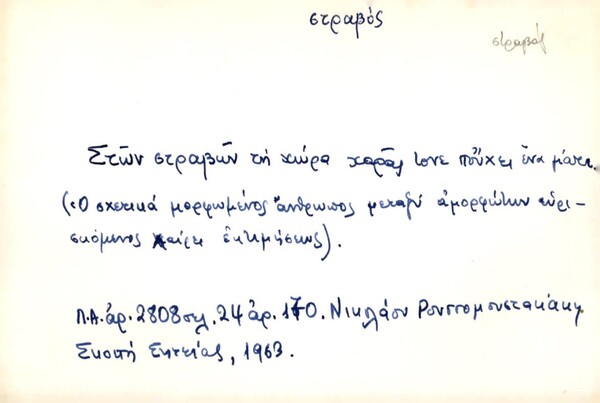 στραβός
στραβός
Στῶν στραβῶν τὴ χώρα χαρᾶς τονε ποὔχει ἕνα μάτι.
(Ὁ σχετικά μορφωμένος ἄνθρωπος μεταξύ ἀμορφώτων εὑρι-
σκόμενος χαίρει ἐκτιμήσεως).
Λ.Α. ἀρ. 2808 σελ. 24 ἀρ. 170. Νικολάου Ρουσσομουστακάκη
Σκοπή Σητείας, 1963.